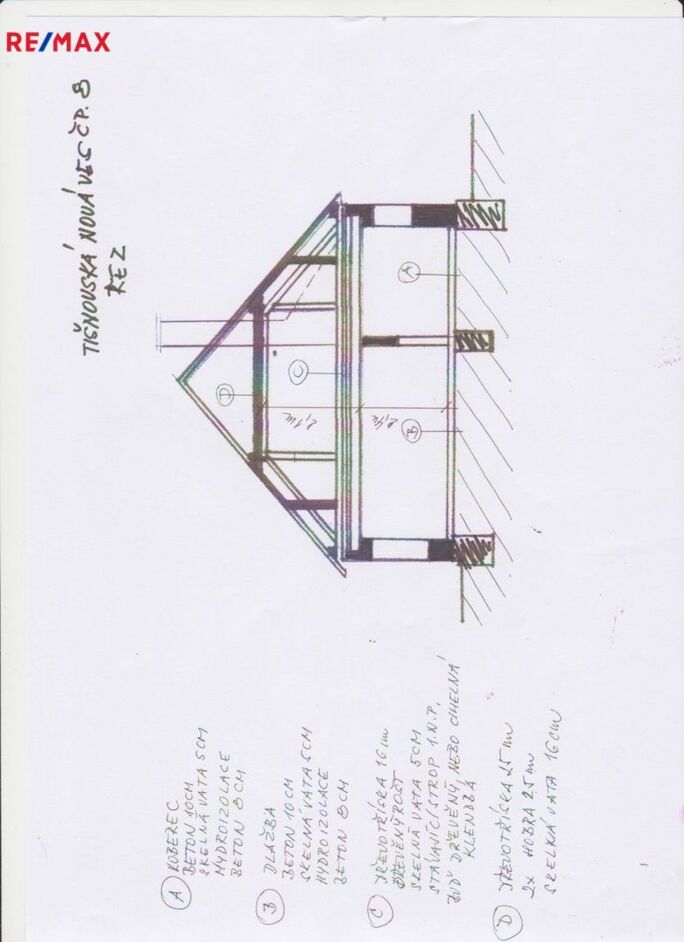 RE/MAX
TIŠNOVSKÁ NOVÁ VES ČP. 8
ŘEZ
A
B
C
D
2,1m
2,4m
A KOBEREC
BETON 10CM
SKELNÁ VATA 5CM
HYDROIZOLACE
BETON 8CM
B DLAŽBA
BETON 10CM
SKELNÁ VATA 5CM
HYDROIZOLACE
BETON 8CM
C DŘEVOTŘÍSKA 16mm
DŘEVĚNÝ ROŠT
SKELNÁ VATA 5CM
STÁVAJÍCÍ STROP 1.N.P.
BUDˇ DŘEVĚNÝ, NEBO CIHELNÁ
KLENBA
D DŘEVOTŘÍSKA 25mm
2x HOBRA 25mm
SKELNÁ VATA 16CM